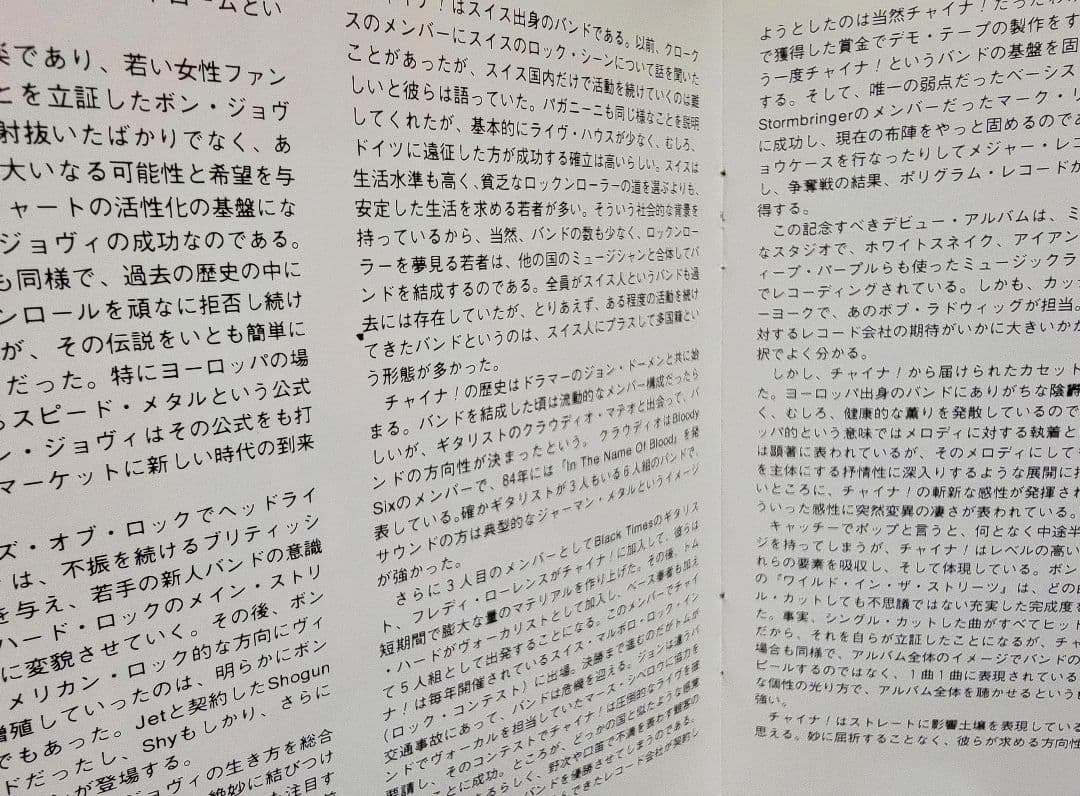 ロームとい
楽であり、若い女性ファン
とを立証したボン・ジョヴ
射抜いたばかりでなく、あ
大いなる可能性と希望を与
チャートの活性化の基盤にな
ジョヴィの成功なのである。
も同様で、過去の歴史の中に
ンロールを頑なに拒否し続け
が、その伝説をいとも簡単に
だった。特にヨーロッパの場
らスピード・メタルという公式
ン・ジョヴィはその公式をも打
マーケットに新しい時代の到来
ズ・オブ・ロックでヘッドライ
は、不振を続けるブリティッシ
を与え、若手の新人バンドの意識
ハード・ロックのメイン・ストリ
に変貌させていく。その後、ボン
メリカン・ロック的な方向にヴィ
増殖していったのは、明らかにボン
でもあった。Jetと契約したShogun
ドだったし、Shyもしかり、さらに
が登場する。
ジョヴィの生き方を総合
絶妙に結びつけ
も注目す
チャイナ!はスイス出身のバンドである。以前、クローク
スのメンバーにスイスのロック・シーンについて話を聞いた
ことがあったが、スイス国内だけで活動を続けていくのは難
しいと彼らは語っていた。パガニーニも同じ様なことを説明
してくれたが、基本的にライヴ・ハウスが少なく、むしろ、
ドイツに遠征した方が成功する確立は高いらしい。スイスは
生活水準も高く、貧乏なロックンローラーの道を選ぶよりも、
安定した生活を求める若者が多い。そういう社会的な背景を
持っているから、当然、バンドの数も少なく、ロックンロー
ラーを夢見る若者は、他の国のミュージシャンと合体してバ
ンドを結成するのである。全員がスイス人というバンドも過
去には存在していたが、とりあえず、ある程度の活動を続け
てきたバンドというのは、スイス人にプラスして多国籍とい
う形態が多かった。
チャイナ!の歴史はドラマーのジョン・ドーメンと共に始
まる。バンドを結成した頃は流動的なメンバー構成だったら
しいが、ギタリストのクラウディオ・マテオと出会って、バ
ンドの方向性が決まったという。クラウディオはBloody
Sixのメンバーで、84年には「In The Name Of Blood」を発
表している。確かギタリストが3人もいる6人組のバンドで、
サウンドの方は典型的なジャーマン・メタルというイメージ
が強かった。
さらに3人目のメンバーとしてBlack Timesのギタリス
ト、フレディ・ローレンスがチャイナ!に加入して、彼らは
短期間で膨大な量のマテリアルを作り上げた。その後、トム
・ハードがヴォーカリストとして加入し、ベース奏者も加え
て5人組として出発することになる。このメンバーでチャイ
ナ!は毎年開催されているスイス・マルボロ・ロック・イン
(ロック・コンテスト)に出場。決勝まで進むのだがトムが
交通事故にあって、バンドは危機を迎える。ジョンは違うバ
ンドでヴォーカルを担当していたマース・シベロウに協力を
要請し、そのコンテストでチャイナ!は圧倒的なライヴを披
ことに成功。ところが、どっかの国と似たような感覚
よるらしく、野次や口笛で不満を表わす観客の
バンドを優勝させてしまうのである。
んできたレコード会社が契約し
ようとしたのは当然チャイナ!だった
で獲得した賞金でデモ・テープの製作をす
う一度チャイナ!というバンドの基盤を固
する。そして、唯一の弱点だったベーシス
Stormbringerのメンバーだったマーク・リ
に成功し、現在の布陣をやっと固めるのであ
ョウケースを行なったりしてメジャー・レコ
し、争奪戦の結果、ポリグラム・レコードが
得する。
この記念すべきデビュー・アルバムは、ミ
なスタジオで、ホワイトスネイク、アイアン
ィープ・パープルらも使ったミュージックラ
でレコーディングされている。しかも、カッ
ーヨークで、あのボブ・ラドウィッグが担当。
対するレコード会社の期待がいかに大きいか
択でよく分かる。
しかし、チャイナ!から届けられたカセット
た。ヨーロッパ出身のバンドにありがちな陰鬱
く、むしろ、健康的な薫りを発散しているので
ッパ的という意味ではメロディに対する執着と
は顕著に表われているが、そのメロディにして
を主体にする抒情性に深入りするような展開に
いところに、チャイナ!の斬新な感性が発揮され
ういった感性に突然変異の凄さが表われている。
キャッチーでポップと言うと、何となく中途半
ジを持ってしまうが、チャイナ!はレベルの高い
れらの要素を吸収し、そして体現している。ボン
の『ワイルド・イン・ザ・ストリーツ』は、どの
ル・カットしても不思議ではない充実した完成度
た。事実、シングル・カットした曲がすべてヒット
だから、それを自らが立証したことになるが、チャ
場合も同様で、アルバム全体のイメージでバンドの
ピールするのではなく、1曲1曲に表現されている
な個性の光り方で、アルバム全体を聴かせるという
強い。
チャイナ!はストレートに影響土壌を表現している
思える。妙に屈折することなく、彼らが求める方向性